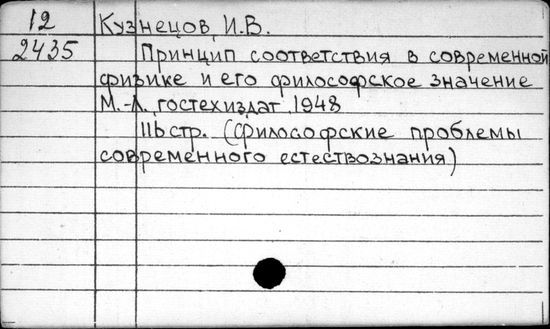 12 Кузнецов, И.В.
2435 Принцип соответствия в современной
физике и его философское значение
М.-Л. гостехиздат, 1948
116 стр. (Философские проблемы
современного естествознания)